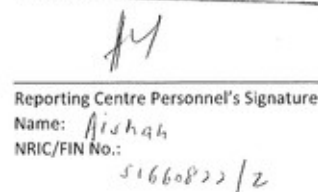 Reporting Centre Personnel's Signature
Name: Aishah
NRIC/FIN No.:
S1660822/Z